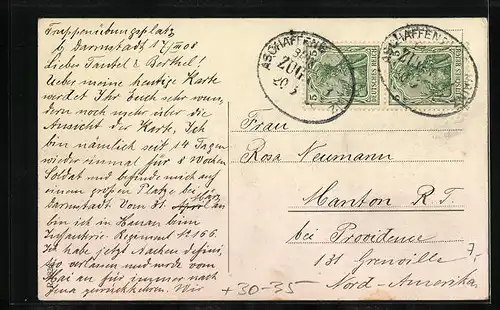 Truppenübungsplatz
b/ Darmstadt 17/III 08
Lieber Taubel & Berthel!
Ueber meine heutige Karte
werdet Ihr Euch sehr wun,
dern noch mehr über die
Ansicht der Karte. Ich
bin nämlich seit 14 Tagen
wieder einmal für 8 Wochen
Soldat und befinde mich auf
einem großen Platze bei
Darmstadt. Vom 31. März an
bin ich in Hanau beim
Infanterie-Regiment No 166.
Ich habe jetzt Aachen defini,
tiv verlassen und werde vom
Mai an für immer nach
Jena zurückkehren. Wir
ASCHAFFENB
BAHN
ZUG
20 3
DEUTSCHES REICH
5
ASCHAFFEN
ZUG
DEUTSCHES REICH
Frau
Rosa Neumann
Manton R. I.
bei Providence
131 Grenville
Nord-Amerika
7,-
+30-35